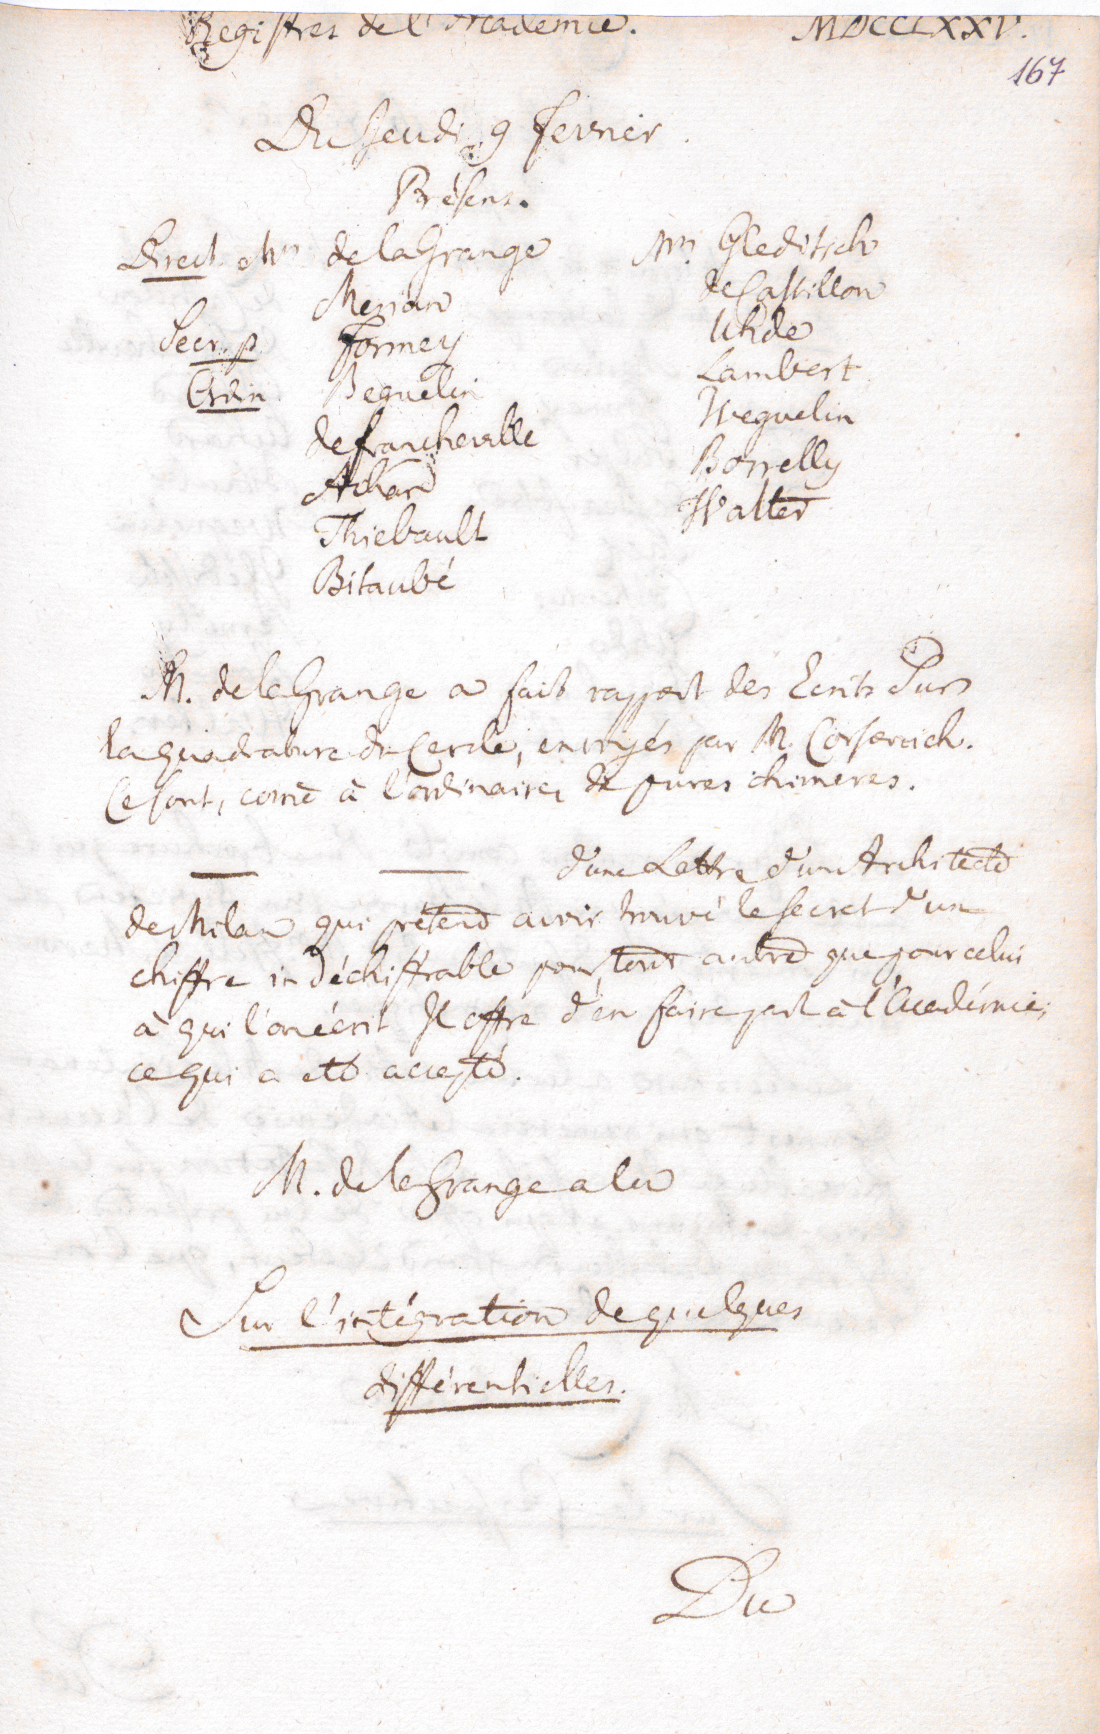 Registres de l'Academie. MDCCLXXV.
167
Du Jeudi 9 Fevrier.
Présens.
Direct Mrs de la Grange
Merian
Secr. p. Formey
Beguelin
de Francheville
Achard
Thiebault
Bitaubé
Mrs. Gleditsch
de Castillon
Uhde
Lambert
Weguelin
Borrelly
Walter
M. de la Grange a fait rapport des Ecrits Sur
la quadrature du Cercle, envoyés par M.
Ce sont, come à l'ordinaire, de pures chimeres.
d'une Lettre d'un Architecte
de Milan qui prétend avoir trouvé le secret d'un
chiffre indéchiffrable pour tout autre que pour celui
à qui l'on écrit Il offre d'en faire part à l'Académie;
ce qui a eté accepté.
M. de la Grange a lu
Sur l'intégration de quelques
différentielles.
Du